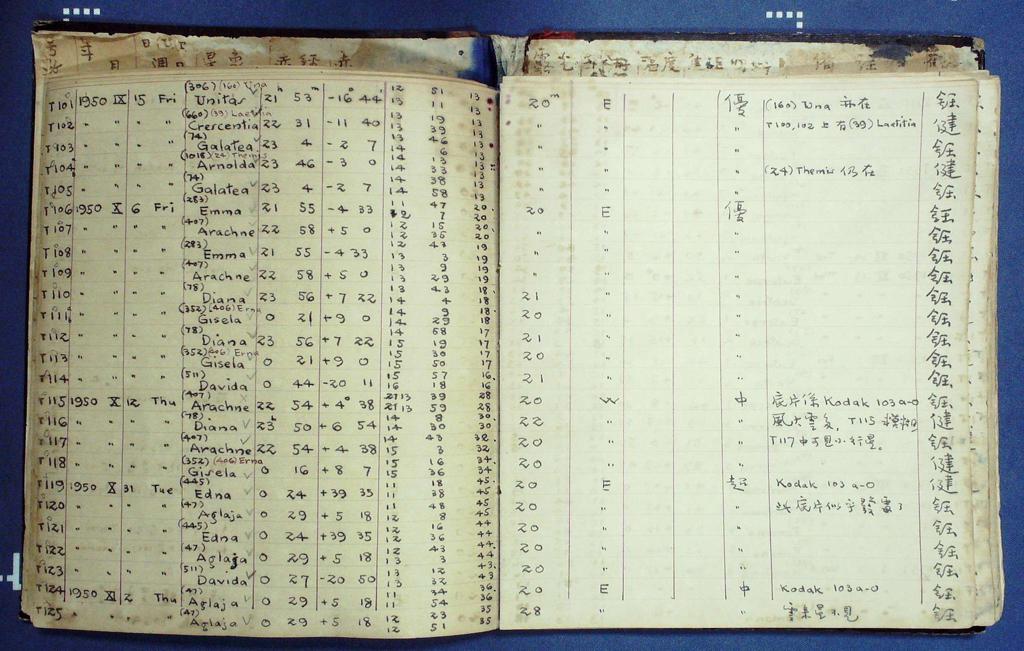 T101 1950 IX 15 Fri (306) (160) Una Unitas 21h 53m -16° 44' 12 51 13 20m E 優 (160) Una 亦在 鈺
13 11 13
T102 " " " " (660) (39) Laetitia Crescentia 22 31 -11 40 13 19 13 " " " T100,102 上有(39) Laetitia 健
13 39 13
T103 " " " " (74) Galatea 23 4 -2 7 " " " 鈺
T104 " " " " (1018) (24) Themis Arnolda 23 46 -3 0 " " " (24) Themis 仍在 健
T105 " " " " (74) Galatea 23 4 -2 7 14 38 13 " " " 鈺
14 58 13
T106 1950 X 6 Fri (283) Emma 21 55 -4 33 11 47 20 20 E 優 鈺
12 7 20
T107 " " " " (407) Arachne 22 58 +5 0 12 15 20 " " " 鈺
12 35 20
T108 " " " " (283) Emma 21 55 -4 33 12 43 19 " " " 鈺
13 3 19
T109 " " " " (407) Arachne 22 58 +5 0 13 9 19 " " " 鈺
13 29 19
T110 " " " " (78) Diana 23 56 +7 22 13 43 18 21 " " 鈺
14 4 18
T111 " " " " (352) (406) Erna Gisela 0 21 +9 0 14 9 18 20 " " 鈺
14 29 18
T112 " " " " (78) Diana 23 56 +7 22 14 58 17 21 " " 鈺
15 19 17
T113 " " " " (352) (406) Erna Gisela 0 21 +9 0 15 30 17 20 " " 鈺
15 50 17
T114 " " " " (511) Davida 0 44 -20 11 15 57 16 21 " " 鈺
16 18 16
T115 1950 X 12 Thu (407) Arachne 22 54 +4° 38 13 39 28 20 W 中 底片係 Kodak 103a-0 鈺
13 59 28
T116 " " " " (78) Diana 23 50 +6 54 14 8 30 22 " " 風大雲多, T115 模糊 健
14 30 30
T117 " " " " (407) Arachne 22 54 +4 38 14 43 32 20 " " T117 中可見小行星. 鈺
15 3 32
T118 " " " " (352) (406) Erna Gisela 0 16 +8 7 15 16 34 20 " " 健
15 36 34
T119 1950 X 31 Tue (445) Edna 0 24 +39 35 11 18 45 20 E 超 Kodak 103a-0 健
11 38 45
T120 " " " " (47) Aglaja 0 29 +5 18 11 48 45 20 " " 此底片似乎發霉了 鈺
12 8 45
T121 " " " " (445) Edna 0 24 +39 35 12 16 44 20 " " 鈺
12 36 44
T122 " " " " (47) Aglaja 0 29 +5 18 12 43 44 20 " " 鈺
13 3 43
T123 " " " " (511) Davida 0 27 -20 50 13 12 43 20 " " 鈺
13 32 43
T124 1950 2 Thu (47) Aglaja 0 29 +5 18 11 34 36 20 E 中 Kodak 103a-0 鈺
11 54 36
T125 " " " " (47) Aglaja 0 29 +5 18 12 23 35 28 " " 鈺
12 51 35